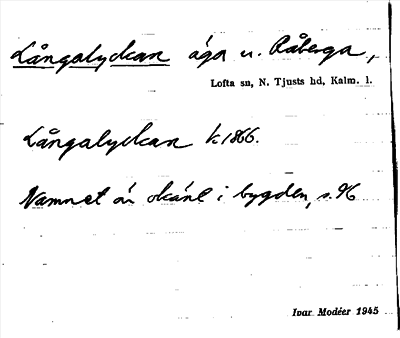 Långalyckan äga u. Råberga,
Lofta sn, N. Tjusts hd, Kalm. l.
Långalyckan k. 1866.
Namnet är okänt i bygden, s. 96
Ivar Modéer 1945